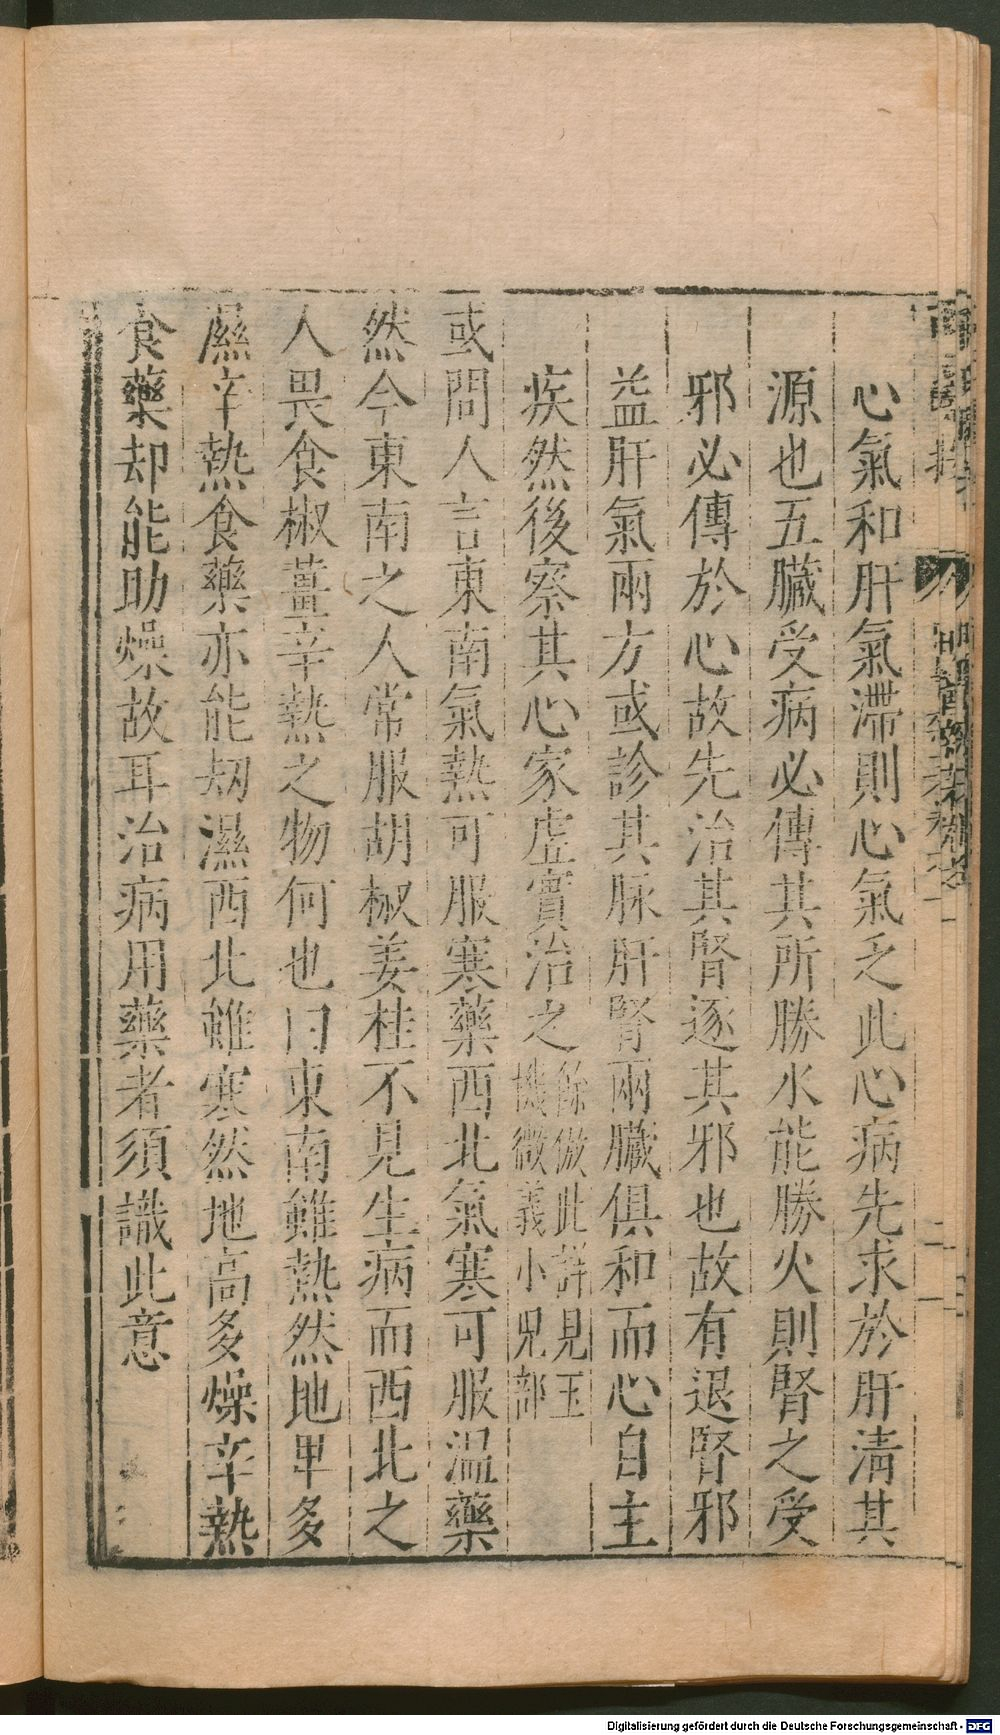 心氣和肝氣滯則心氣乏此心病先求於肝清其
源也五臟受病必傳其所勝水能勝火則腎之受
邪必傳於心故先治其腎逐其邪也故有退腎邪
益肝氣兩方或診其脉肝腎兩臟俱和而心自主
疾然後察其心家虛實治之
餘倣此詳見玉
機微義小兒部
或問人言東南氣熱可服寒藥西北氣寒可服温藥
然今東南之人常服胡椒姜桂不見生病而西北之
人畏食椒薑辛熱之物何也曰東南雖熱然地卑多
濕辛熱食藥亦能刼濕西北雖寒然地高多燥辛熱
食藥却能助燥故耳治病用藥者須識此意
Digitalisierung gefördert durch die Deutsche Forschungsgemeinschaft - DFG